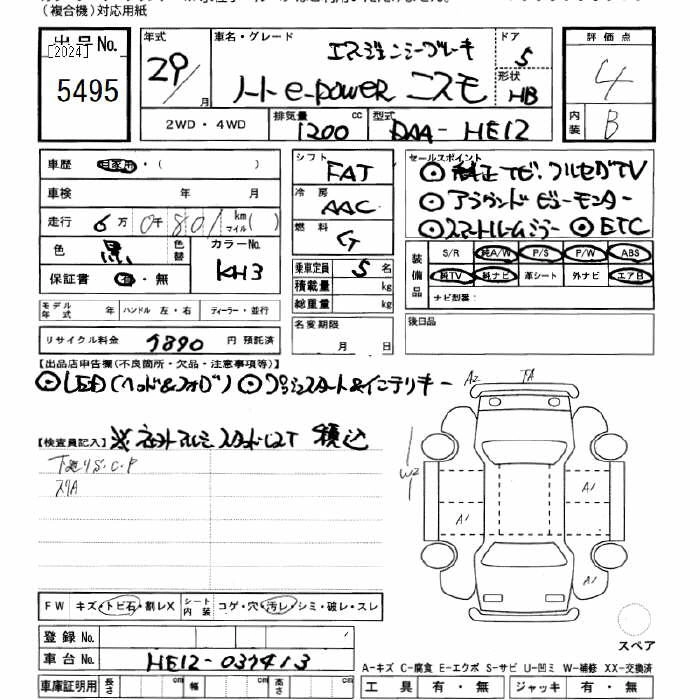 （複合機）対応用紙
出品No.
[2024]
5495
年式
29
月
車名・グレード
エマージェンシーブレーキ
ノート e-power ニスモ
ドア
5
形状
HB
評価点
4
内装
B
2WD・4WD
排気量
1200
cc
型式
DAA-HE12
車歴
自家用・（　）
車検
年
月
走行
6万0千801
km
マイル
（　）
色
黒
色替
カラーNo.
KH3
保証書
有・無
シフト
FAT
冷房
AAC
燃料
G
乗車定員
5名
積載量
kg
総重量
kg
セールスポイント
◎純正ナビ.フルセグTV
◎アラウンドビューモニター
◎スマートルームミラー ◎ETC
装備品
S/R
純A/W
P/S
P/W
ABS
純TV
純ナビ
革シート
外ナビ
エアB
ナビ型番：
モデル年式
年
ハンドル 左・右
ディーラー・並行
リサイクル料金
9890
円 預託済
名変期限
月
日
後日品
【出品店申告欄(不良箇所・欠品・注意事項等)】
◎LED(ヘッド&フォグ) ◎プッシュスタート&インテリキー
【検査員記入】
※ネット アルミ スタッドレスT 積込
下廻りS.C.P
スリA
A2
FA
W2
A1
A1
A1
A1
FW
キズ・トビ石・割レX
シート内装
コゲ・穴・汚レ・シミ・破レ・スレ
登録No.
車台No.
HE12-037413
車庫証明用
長さ
cm
幅
cm
高さ
cm
スペア
A-キズ C-腐食 E-エクボ S-サビ U-凹ミ W-補修 XX-交換済
工具
有・無
ジャッキ
有・無